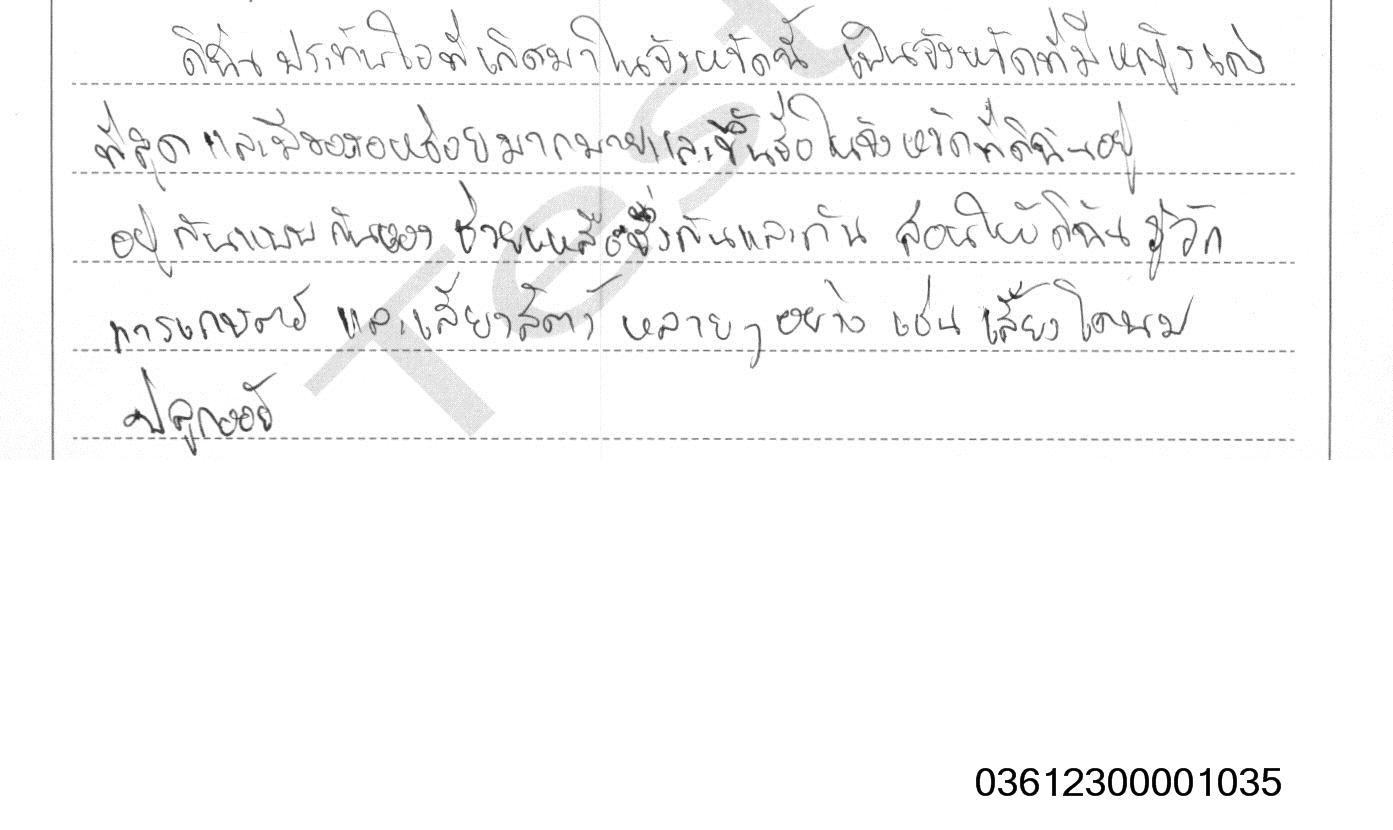 ดิฉัน ประทับใจที่เกิดมาในจังหวัดนี้ เป็นจังหวัดที่มีหญิงเก่ง
ที่สุด และมีของอหร่อยมากมายและขึ้นชื่อ ในจังหวัดที่ดิฉันอยู่
อยู่กันแบบกันเอง ช่วยเหลือซึ่งกันและกัน สอนให้ดิฉัน รู้จัก
การเกษตร และเลี้ยงสัตว์ หลายๆ อย่าง เช่น เลี้ยงโคนม
ปลูกออย
Test
03612300001035